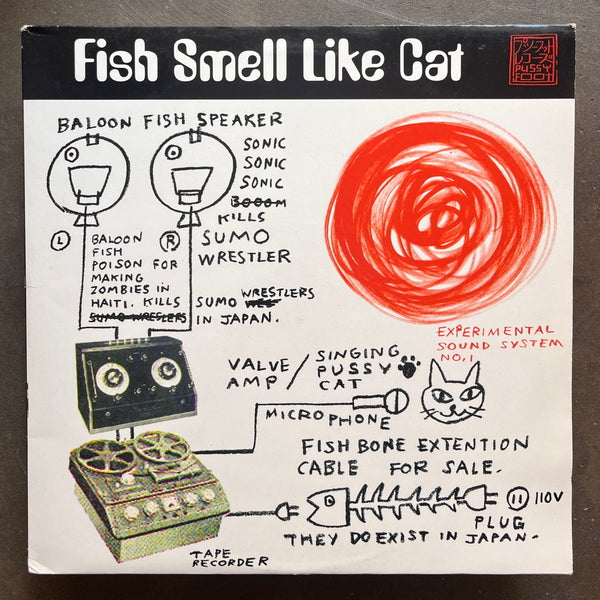 Fish Smell Like Cat
プシーフット
レコーズ
PUSSY
FOOT
BALOON FISH SPEAKER
SONIC
SONIC
SONIC
BOOOM
KILLS
SUMO
WRESTLER
L
R
BALOON
FISH
POISON FOR
MAKING
ZOMBIES IN
HAITI. KILLS SUMO WRESTLERS
SUMO WRESLERS IN JAPAN.
EXPERIMENTAL
SOUND SYSTEM
NO.1
VALVE / SINGING
AMP PUSSY
CAT
MICROPHONE
FISH BONE EXTENTION
CABLE FOR SALE.
110V
PLUG
THEY DO EXIST IN JAPAN.
TAPE
RECORDER